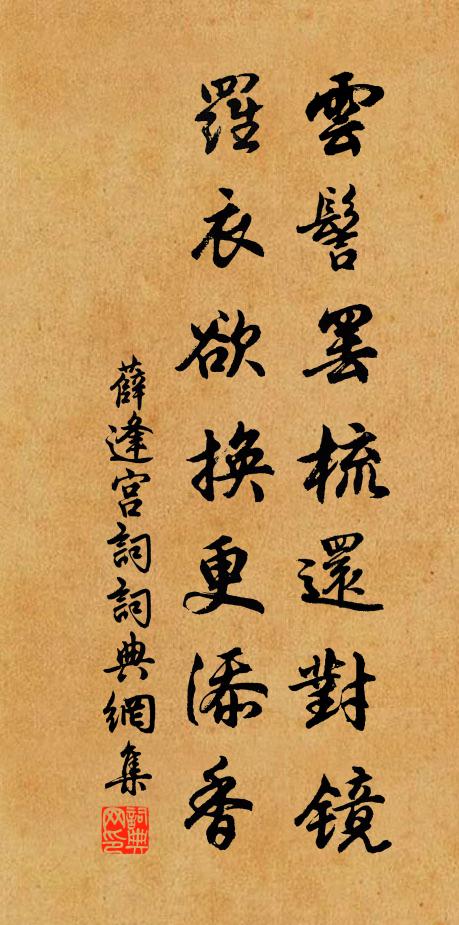 雲髻罷梳還對鏡
羅衣欲換更添香
薛逢宫詞詞典網集
詞典网印